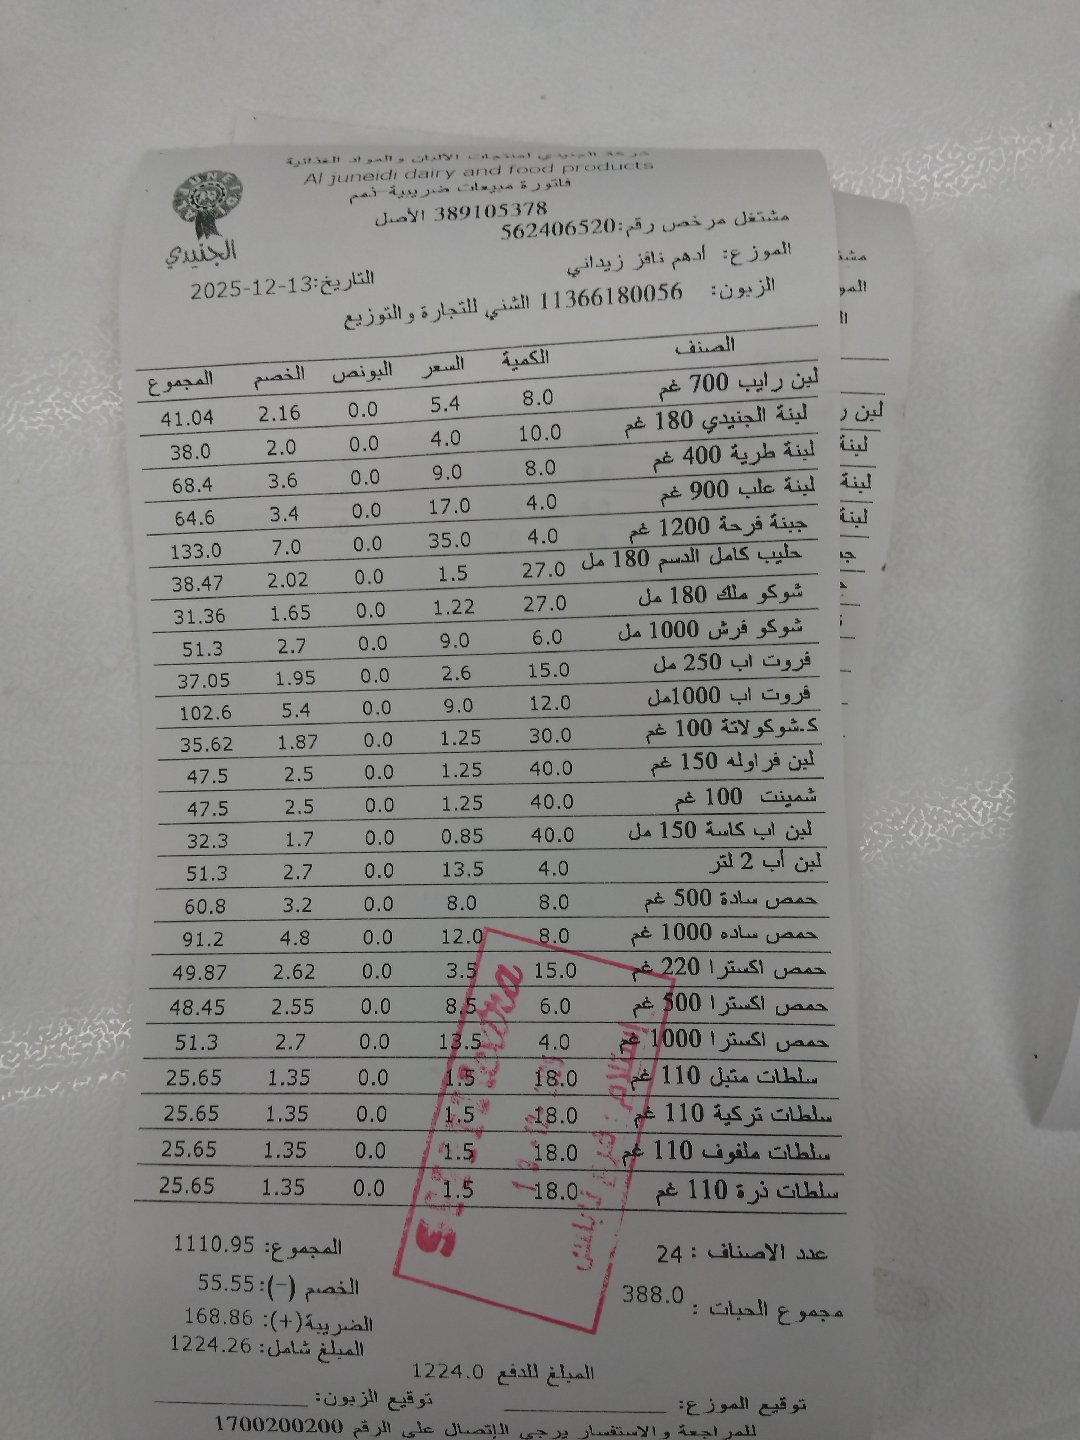 شركة الجنيدي لمنتجات الالبان والمواد الغذائية
Al juneidi dairy and food products
فاتورة مبيعات ضريبية-ذمم
389105378 الأصل
مشتغل مرخص رقم:562406520
الجنيدي
الموزع: أدهم نافز زيداني
التاريخ:2025-12-13
الزبون: 11366180056 الشني للتجارة والتوزيع
الصنف الكمية السعر البونص الخصم المجموع
لبن رايب 700 غم 8.0 5.4 0.0 2.16 41.04
لبنة الجنيدي 180 غم 10.0 4.0 0.0 2.0 38.0
لبنة طرية 400 غم 8.0 9.0 0.0 3.6 68.4
لبنة علب 900 غم 4.0 17.0 0.0 3.4 64.6
جبنة فرحة 1200 غم 4.0 35.0 0.0 7.0 133.0
حليب كامل الدسم 180 مل 27.0 1.5 0.0 2.02 38.47
شوكو ملك 180 مل 27.0 1.22 0.0 1.65 31.36
شوكو فرش 1000 مل 6.0 9.0 0.0 2.7 51.3
فروت اب 250 مل 15.0 2.6 0.0 1.95 37.05
فروت اب 1000مل 12.0 9.0 0.0 5.4 102.6
ك.شوكولاتة 100 غم 30.0 1.25 0.0 1.87 35.62
لبن فراوله 150 غم 40.0 1.25 0.0 2.5 47.5
شمينت 100 غم 40.0 1.25 0.0 2.5 47.5
لبن اب كاسة 150 مل 40.0 0.85 0.0 1.7 32.3
لبن أب 2 لتر 4.0 13.5 0.0 2.7 51.3
حمص سادة 500 غم 8.0 8.0 0.0 3.2 60.8
حمص ساده 1000 غم 8.0 12.0 0.0 4.8 91.2
حمص اكسترا 220 غم 15.0 3.5 0.0 2.62 49.87
حمص اكسترا 500 غم 6.0 8.5 0.0 2.55 48.45
حمص اكسترا 1000 غم 4.0 13.5 0.0 2.7 51.3
سلطات متبل 110 غم 18.0 1.5 0.0 1.35 25.65
سلطات تركية 110 غم 18.0 1.5 0.0 1.35 25.65
سلطات ملفوف 110 غم 18.0 1.5 0.0 1.35 25.65
سلطات ذرة 110 غم 18.0 1.5 0.0 1.35 25.65
عدد الاصناف : 24
المجموع: 1110.95
مجموع الحبات : 388.0
الخصم (-):55.55
الضريبة(+): 168.86
المبلغ شامل: 1224.26
المبلغ للدفع 1224.0
توقيع الموزع:
توقيع الزبون:
للمراجعة والاستفسار يرجى الإتصال على الرقم 1700200200
استلام : فرع نابلس